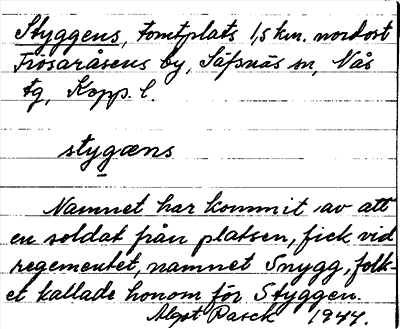 Styggens, tomtplats 1,5 km. nordost
Frösaråsens by, Säfsnäs sn, Nås
tg, Kopp. l.
stygæns
Namnet har kommit av att
en soldat från platsen, fick vid
regementet, namnet Snygg, folk-
et kallade honom för Styggen.
Algot Parck 1944.